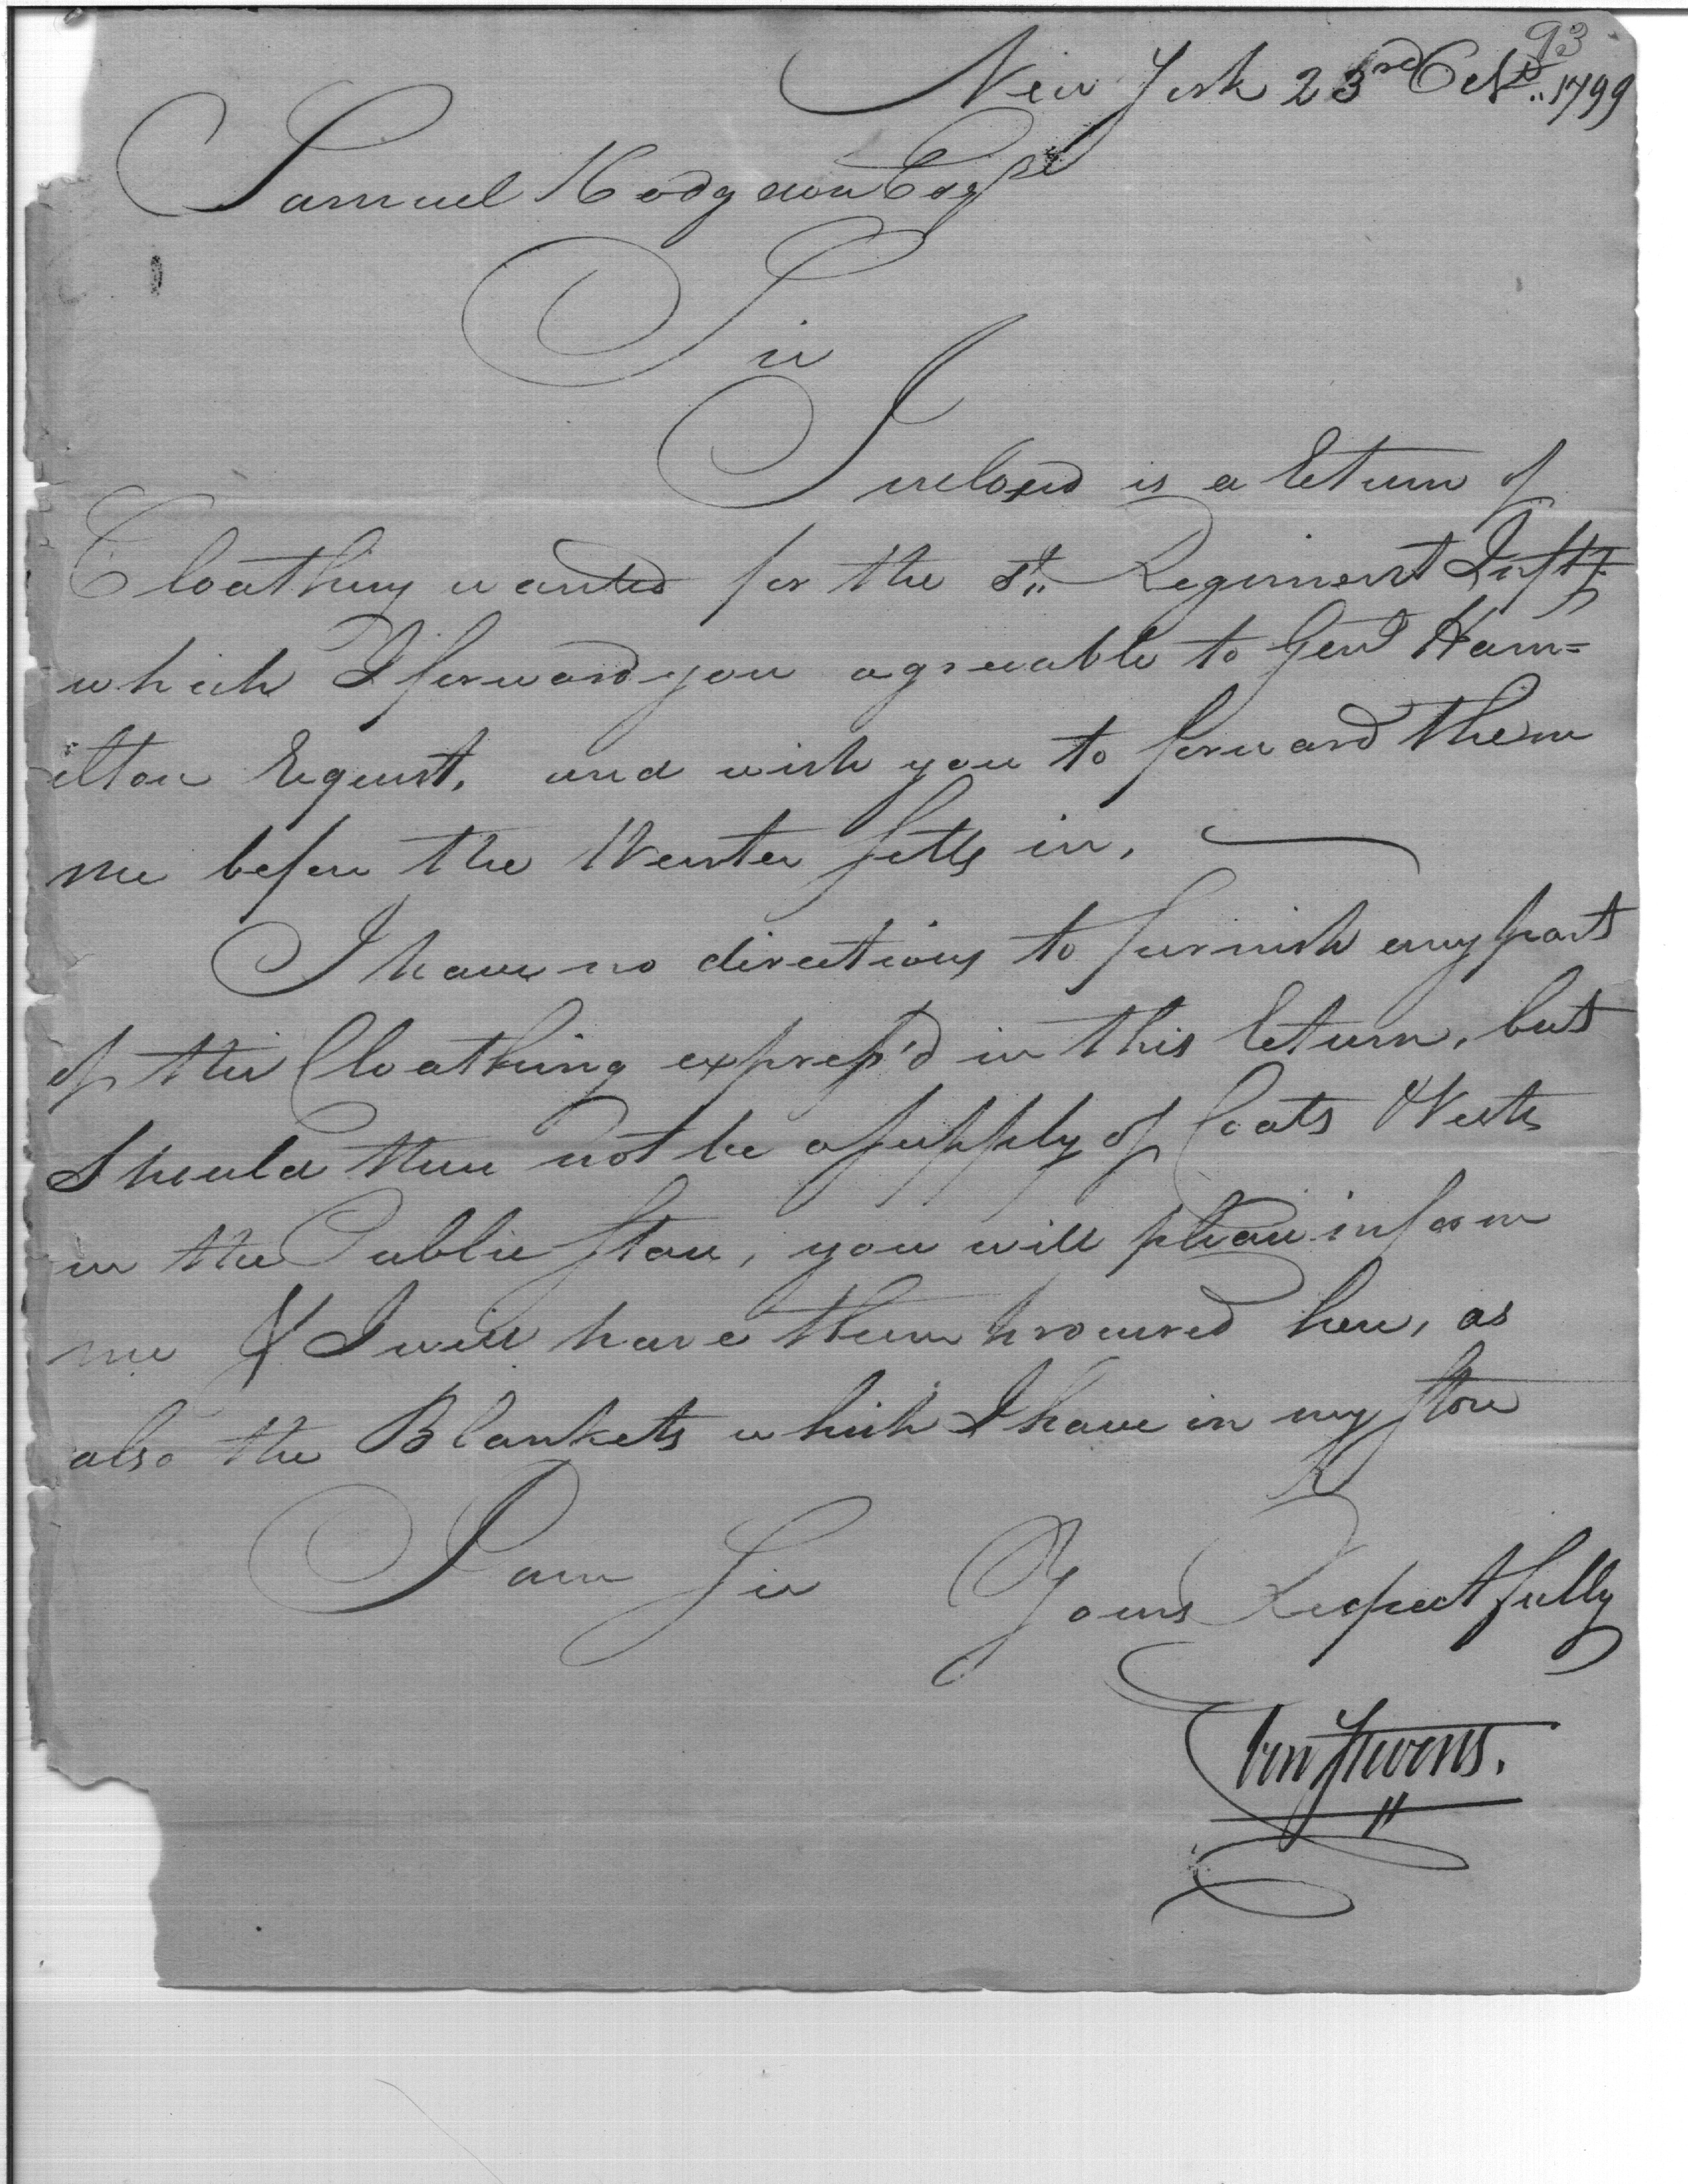 93
New York 23rd Octr. 1799
Samuel Hodgdon Esqre
Sir
Inclosed is a Return of
Cloathing wanted for the Regiment Infty.
which I forward you agreeable to Genl Ham=
ilton Request, and wish you to forward them
me before the Winter setts in.
I have no directions to furnish any part
of the Cloathing express'd in this Return, but
Should there not be a supply of Coats & Vests
in the Public Store, you will please inform
me & I will have them procured here, as
also the Blankets which I have in my Store
I am Sir Yours Respectfully
Eben Stevens.